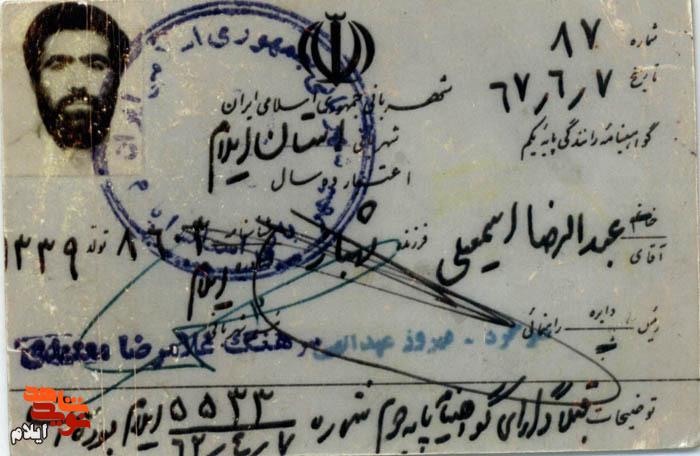 شماره ۸۷
تاریخ ۶۷٫۶٫۷
جمهوری اسلامی ایران
شهربانی جمهوری اسلامی ایران
شهربانی استان ایلام
گواهینامه رانندگی پایه یکم
اعتبار ده سال
خانم
آقای عبدالرضا اسمعیلی فرزند شهباز شناسنامه ۸۶۳ تولد ۱۳۳۹
ایلام
رئیس دایره راهنمائی
سرهنگ غلامرضا معتمدی
توضیحات قبلا دارای گواهینامه پایه دوم شماره ۵۵۳۳ ایلام بوده
۶۲٫۴٫۷
ایلام